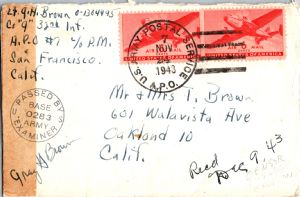 Lt. G. H. Brown O-1304495
Co "G" 32nd Inf.
A.P.O. #7 c/o P.M.
San Francisco.
Calif.
U.S. ARMY POSTAL SERVICE
NOV
1943
A.P.O.
AIR MAIL
UNITED STATES OF AMERICA
PASSED BY
BASE
0283
ARMY
EXAMINER
Mr & Mrs T. Brown
601 Walavista Ave
Oakland 10
Calif.
Brown
Recd Dec 9, 43